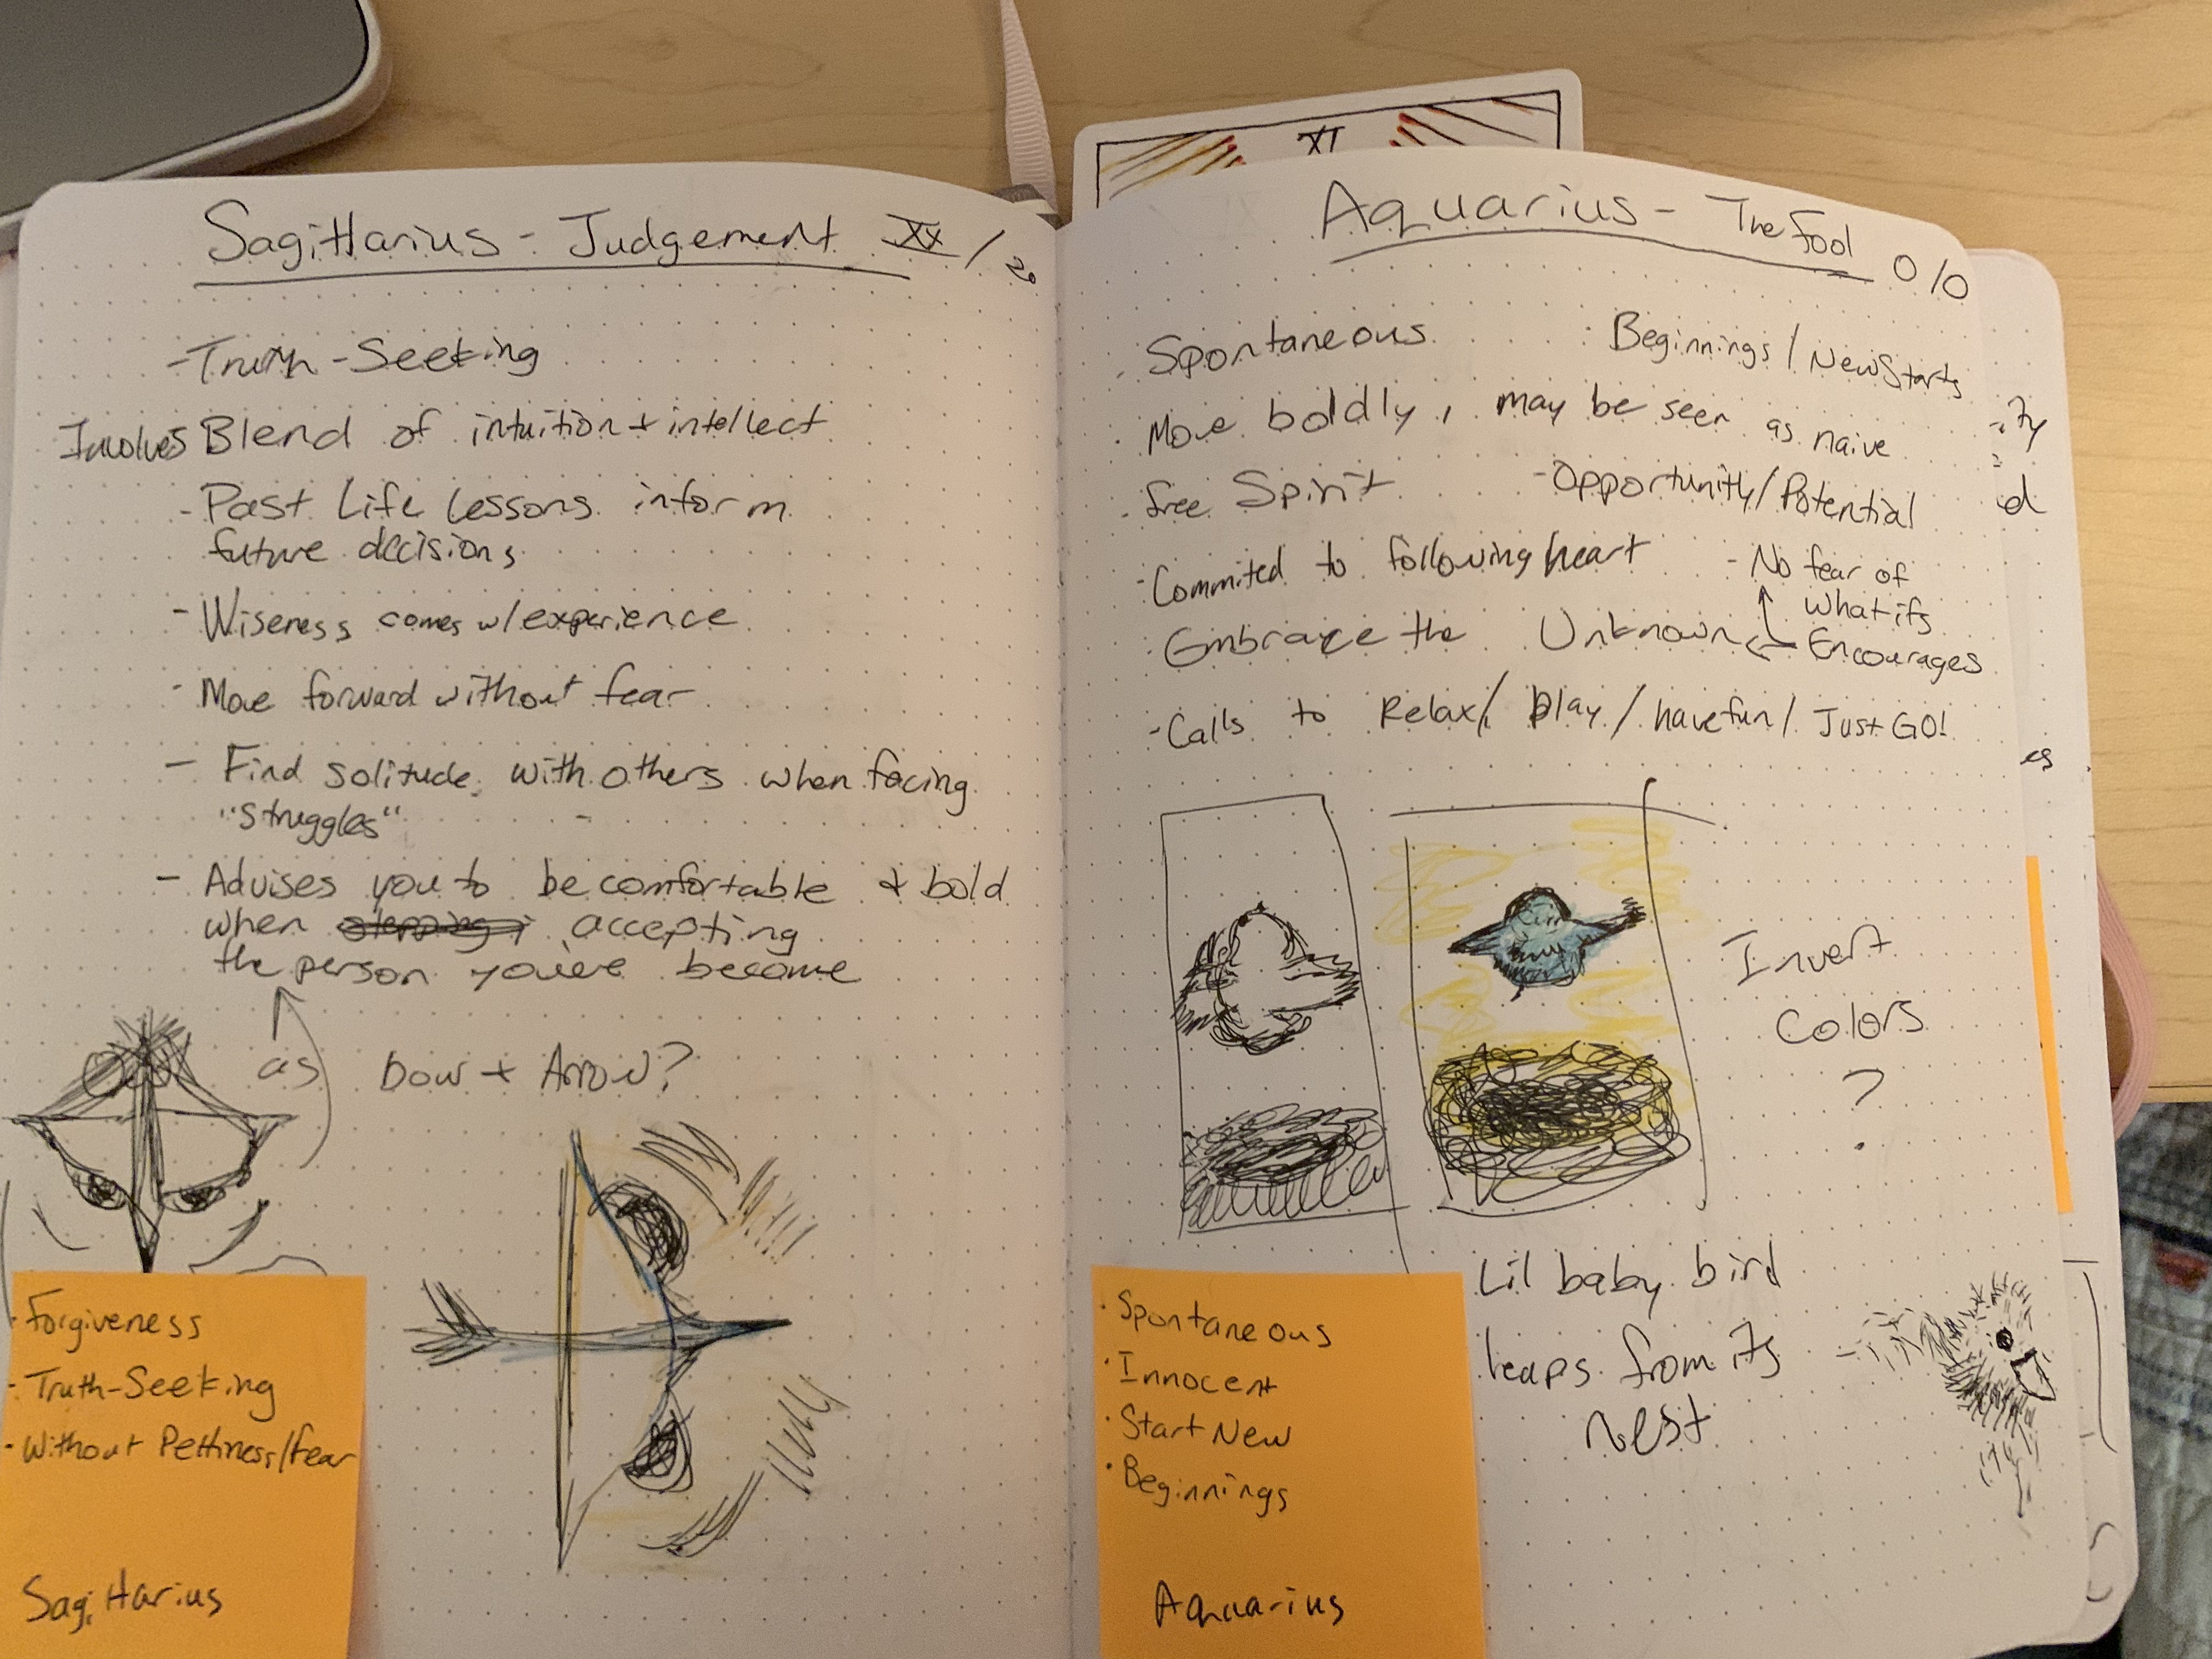 XI
Sagittarius - Judgement XX / 20
- Truth - Seeking
Involves Blend of intuition + intellect
- Past Life Lessons inform
future decisions
- Wiseness comes w/ experience
- Move forward without fear
- Find solitude with others when facing
"struggles"
- Advises you to be comfortable + bold
when accepting
the person you've become
as
bow + Arrow?
· Forgiveness
- Truth-Seeking
· Without Pettiness/fear
Sagittarius
Aquarius - The Fool 0/0
· Spontaneous
: Beginnings / New Starts
· Move boldly, may be seen as naive
· free Spirit
- Opportunity/Potential
· Commited to following heart
- No fear of
what ifs
· Embrace the Unknown ← Encourages
· Calls to Relax/ Play / have fun / Just GO!
Invert
Colors
?
Lil baby bird
leaps from its
nest
· Spontaneous
· Innocent
· Start New
· Beginnings
Aquarius
ity
d
es